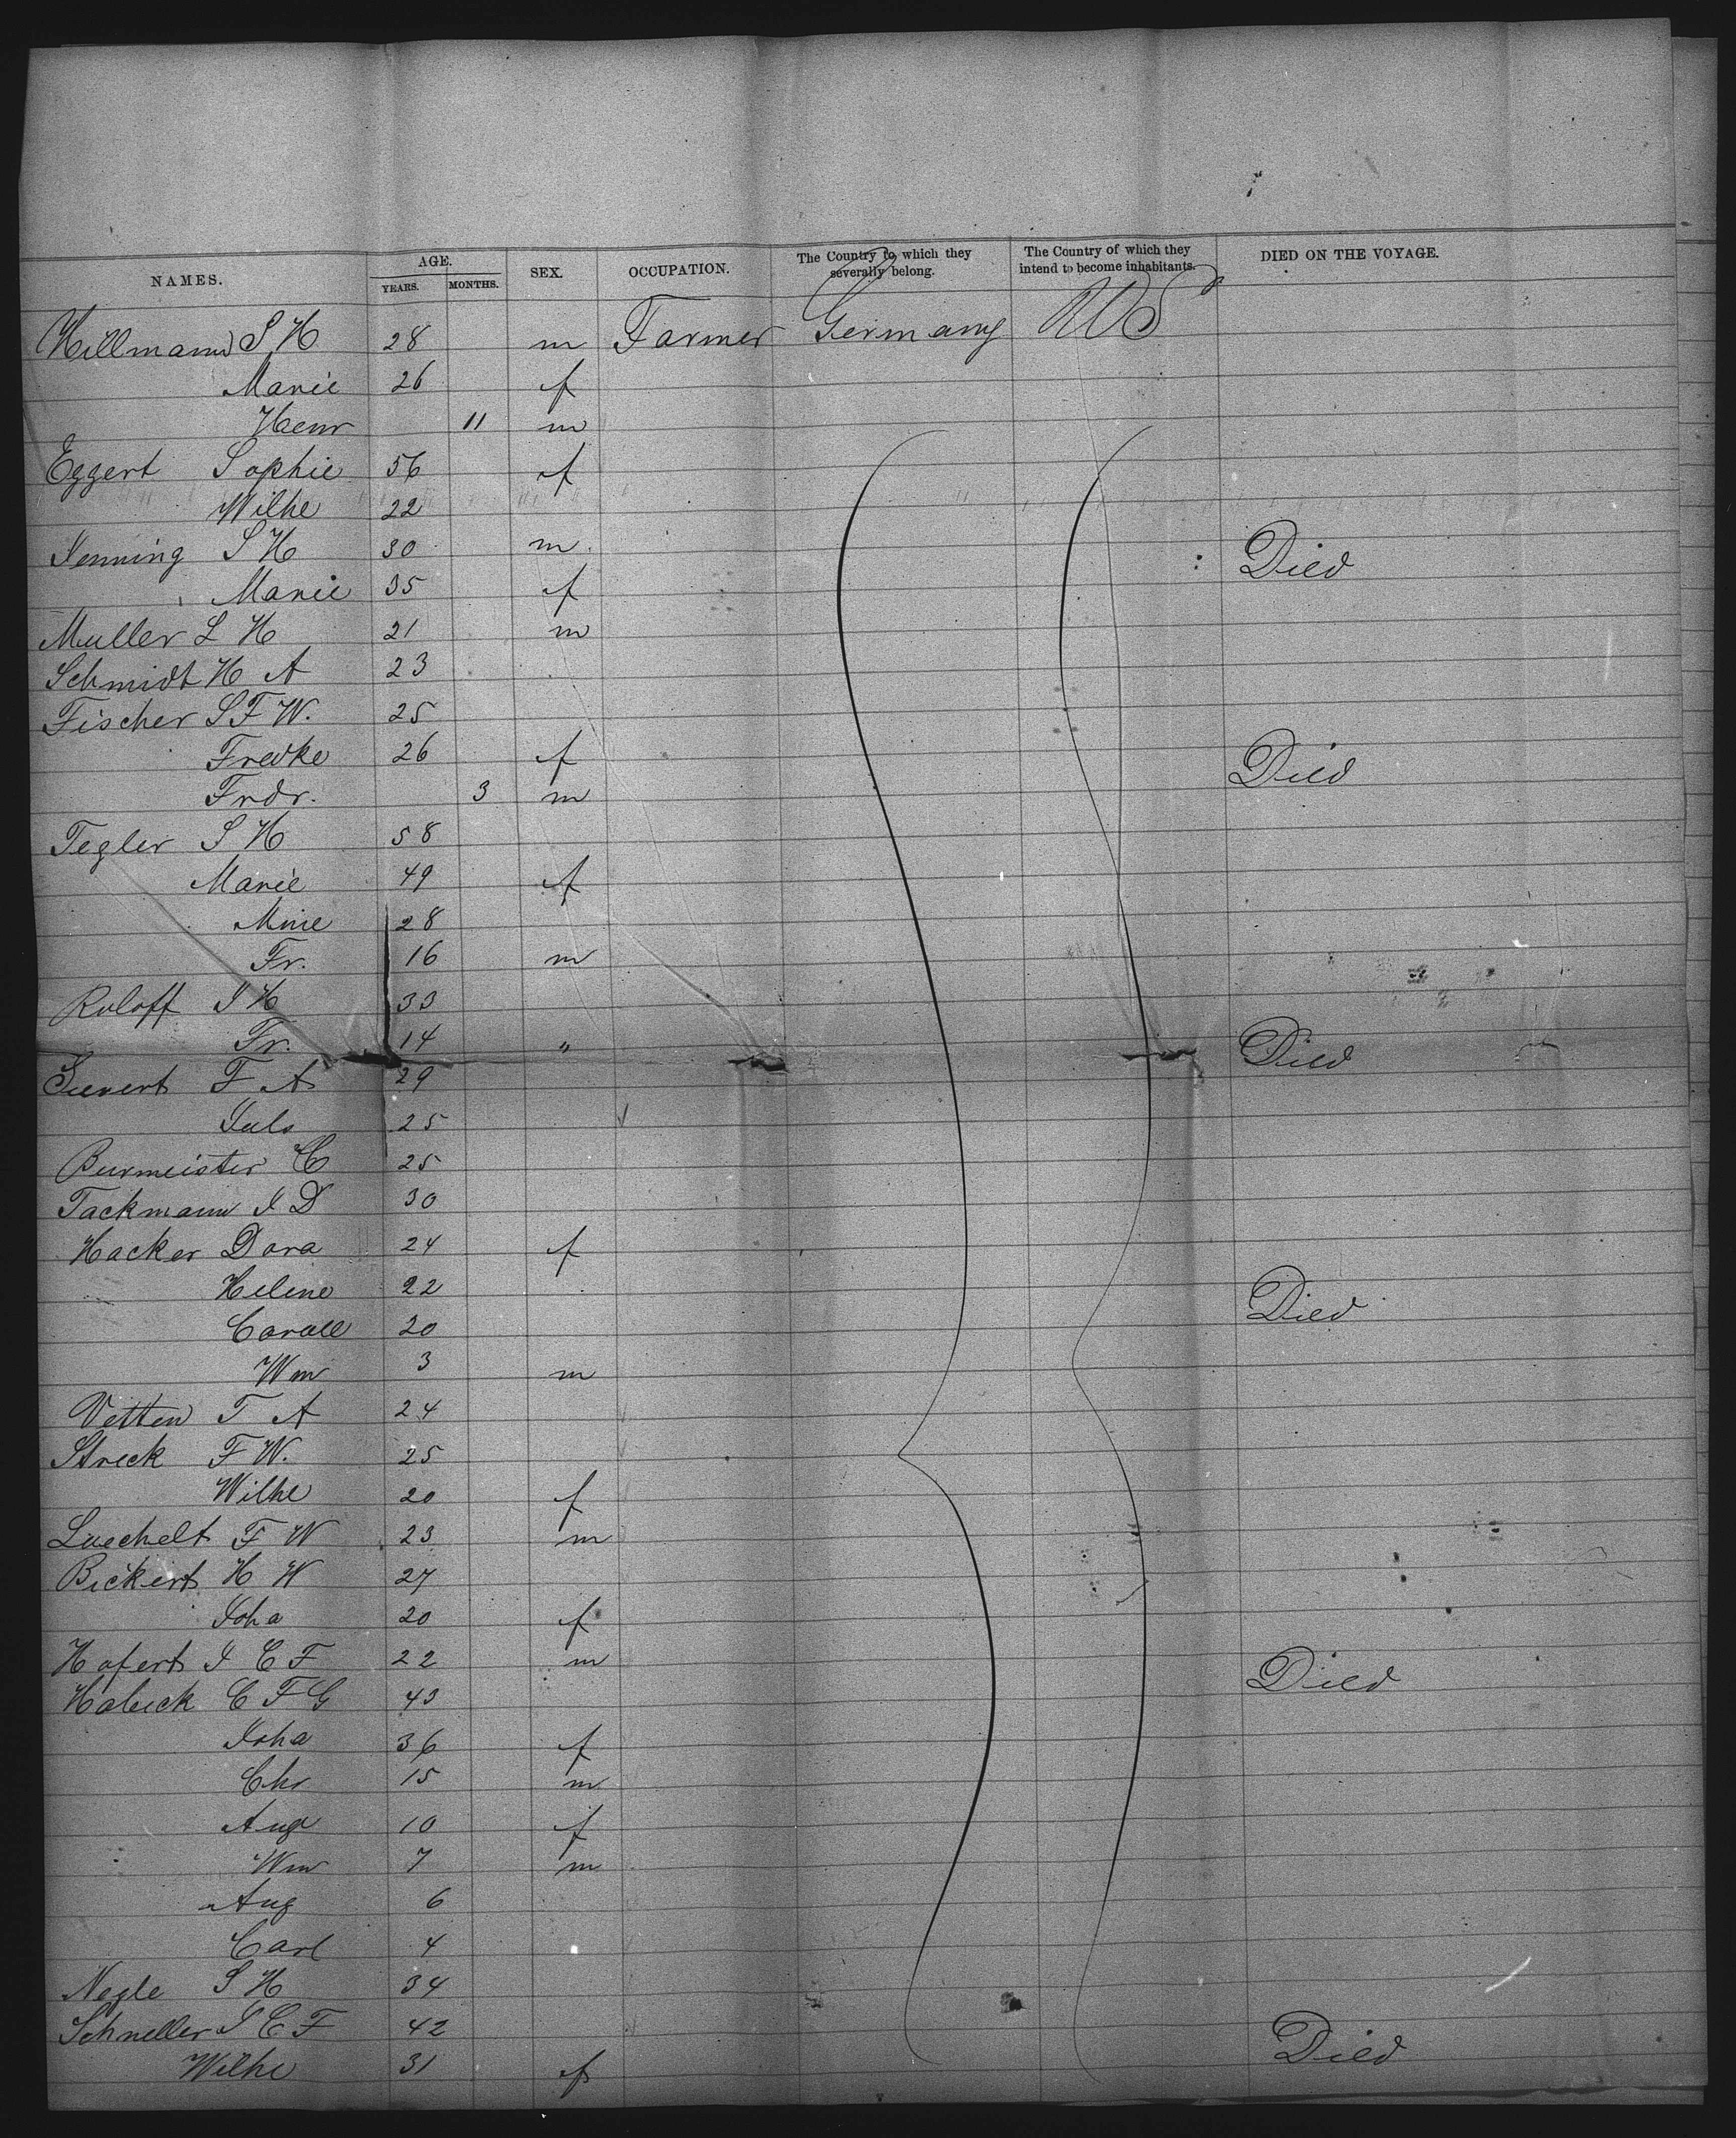 NAMES. AGE. YEARS. MONTHS. SEX. OCCUPATION. The Country to which they severally belong. The Country of which they intend to become inhabitants. DIED ON THE VOYAGE.
Hillmann J H 28 m Farmer Germany US
Marie 26 f
Henr 11 m
Eggert Sophie 56 f
Wilhe 22
Henning J H 30 m Died
Marie 35 f
Muller L H 21 m
Schmidt H A 23
Fischer J F W. 25
Fredke 26 f Died
Frdr. 3 m
Tegler J H 58
Marie 49 f
Mine 28
Fr. 16 m
Ruloff J H 33
Fr. 14 " Died
Sievert F A 29
Juls 25
Burmeister C 25
Tackmann J D 30
Hacker Dora 24 f
Helene 22 Died
Caroll 20
Wm 3 m
Vetten T A 24
Streck F W. 25
Wilhe 20 f
Luechelt F W 23 m
Bickert H W 27
Joha 20 f
Hofert J C F 22 m Died
Habeck C F G 43
Joha 36 f
Chr 15 m
Aug 10 f
Wm 7 m
Aug 6
Carl 4
Negle J H 34
Schneller J C F 42 Died
Wilhe 31 f